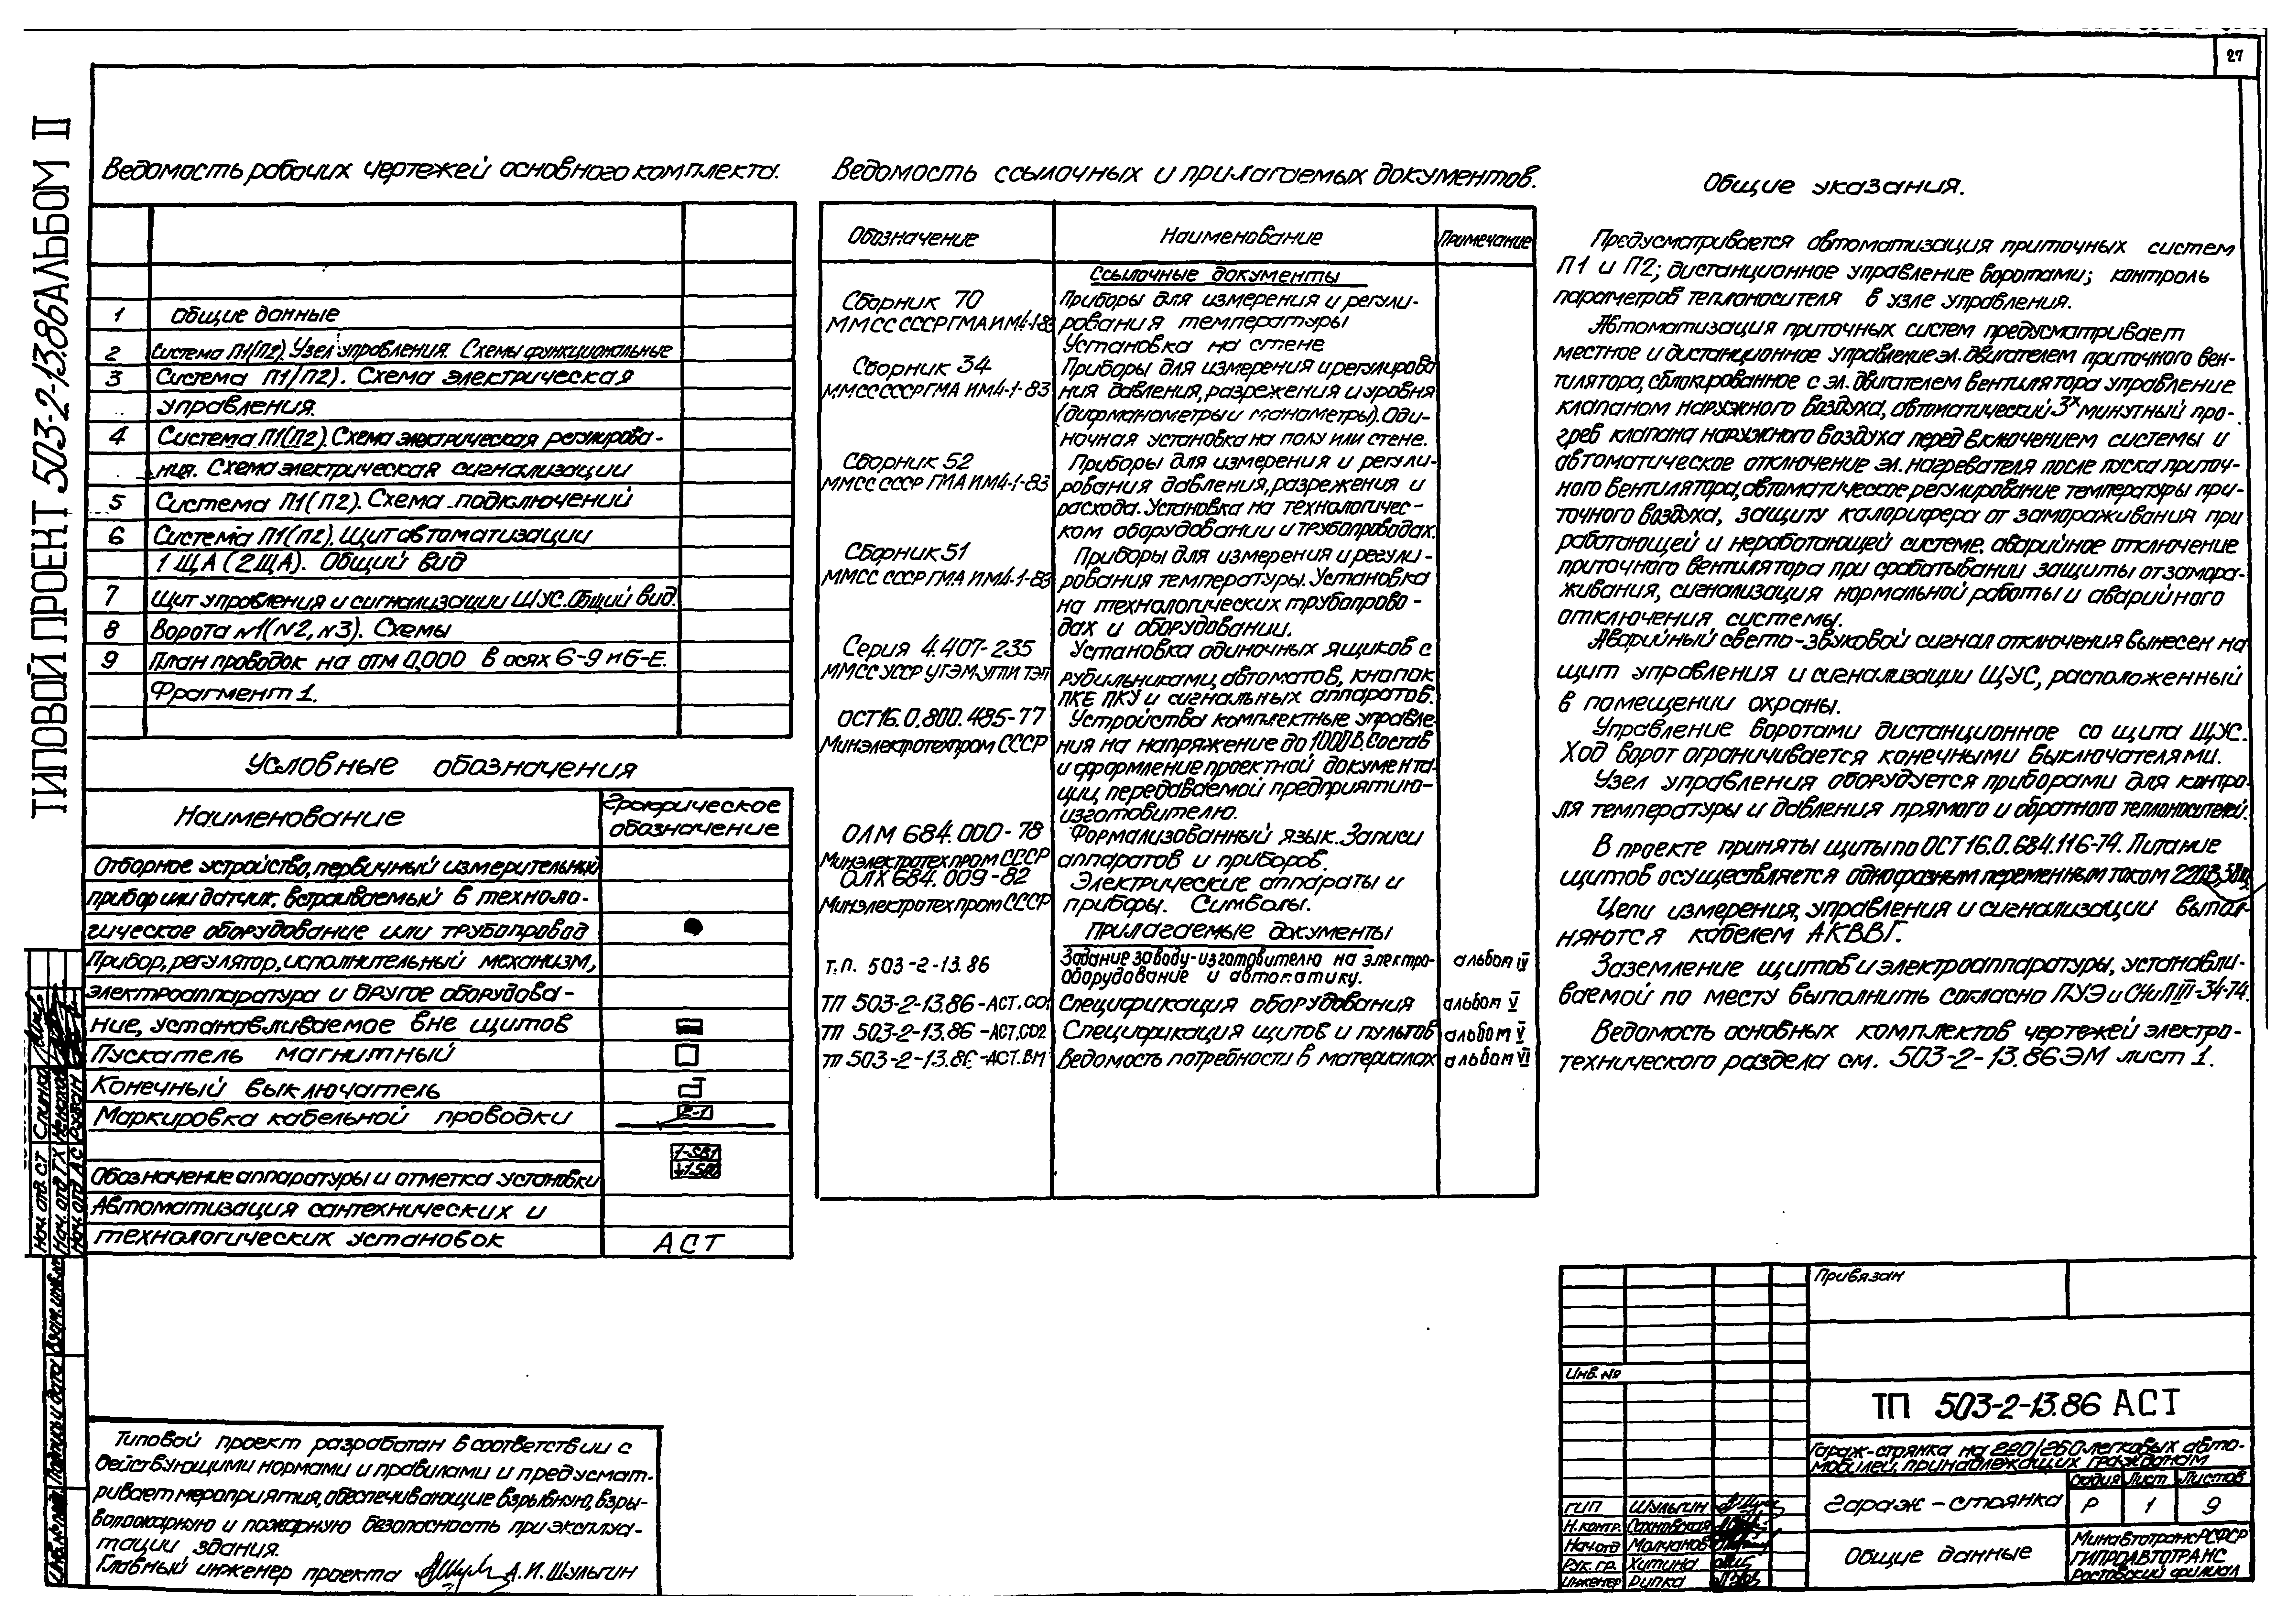 27
ТИПОВОЙ ПРОЕКТ 503-2-13.86 АЛЬБОМ II
Ведомость рабочих чертежей основного комплекта.
1 Общие данные
2 Система П1(П2). Узел управления. Схемы функциональные
3 Система П1(П2). Схема электрическая
управления.
4 Система П1(П2). Схема электрическая регулирова-
ния. Схема электрическая сигнализации
5 Система П1(П2). Схема подключений
6 Система П1(П2). Щит автоматизации
1 ЩА (2ЩА). Общий вид
7 Щит управления и сигнализации ЩУС. Общий вид.
8 Ворота №1(№2, №3). Схемы
9 План проводок на отм 0,000 в осях 6-9 и Б-Е.
Фрагмент 1.
Условные обозначения
Наименование
Графическое
обозначение
Отборное устройство, первичный измерительный
прибор или датчик, встраиваемый в техноло-
гическое оборудование или трубопровод
Прибор, регулятор, исполнительный механизм,
электроаппаратура и другое оборудова-
ние, устанавливаемое вне щитов
Пускатель магнитный
Конечный выключатель
Маркировка кабельной проводки 2-1
1-SB1
Обозначение аппаратуры и отметка установки
Автоматизация сантехнических и
технологических установок АСТ
Типовой проект разработан в соответствии с
действующими нормами и правилами и предусмат-
ривает мероприятия, обеспечивающие взрывную, взры-
вопожарную и пожарную безопасность при эксплуа-
тации здания.
Главный инженер проекта А.И. Шульгин
Ведомость ссылочных и прилагаемых документов.
Обозначение Наименование Примечание
Ссылочные документы
Сборник 70 Приборы для измерения и регули-
ММСС СССР ГМА ИМ4-1-83 рования температуры
Установка на стене
Сборник 34 Приборы для измерения и регулирова
ММСС СССР ГМА ИМ4-1-83 ния давления, разрежения и уровня
(дифманометры и манометры). Оди-
ночная установка на полу или стене.
Сборник 52 Приборы для измерения и регули-
ММСС СССР ГМА ИМ4-1-83 рования давления, разрежения и
расхода. Установка на технологичес-
ком оборудовании и трубопроводах.
Сборник 51 Приборы для измерения и регули-
ММСС СССР ГМА ИМ4-1-83 рования температуры. Установка
на технологических трубопрово-
дах и оборудовании.
Серия 4.407-235 Установка одиночных ящиков с
ММСС УССР УГЭМ-УГПИ ТЭП рубильниками, автоматов, кнопок
ПКЕ ПКУ и сигнальных аппаратов.
ОСТ16.0.800.485-77 Устройства комплектные управле-
Минэлектротехпром СССР ния на напряжение до 1000В. Состав
и оформление проектной документа-
ции, передаваемой предприятию-
изготовителю.
ОЛМ 684.000-78 Формализованный язык. Записи
Минэлектротехпром СССР аппаратов и приборов.
ОЛХ 684.009-82 Электрические аппараты и
Минэлектротехпром СССР приборы. Символы.
Прилагаемые документы
т.п. 503-2-13.86 Задание заводу-изготовителю на электро- альбом IV
оборудование и автоматику.
ТП 503-2-13.86-АСТ.СО1 Спецификация оборудования альбом V
ТП 503-2-13.86-АСТ.СО2 Спецификация щитов и пультов альбом V
ТП 503-2-13.86-АСТ.ВМ Ведомость потребности в материалах альбом VI
Общие указания.
Предусматривается автоматизация приточных систем
П1 и П2; дистанционное управление воротами; контроль
параметров теплоносителя в узле управления.
Автоматизация приточных систем предусматривает
местное и дистанционное управление эл.двигателем приточного вен-
тилятора, сблокированное с эл.двигателем вентилятора управление
клапаном наружного воздуха, автоматический 3х минутный про-
грев клапана наружного воздуха перед включением системы и
автоматическое отключение эл.нагревателя после пуска приточ-
ного вентилятора, автоматическое регулирование температуры при-
точного воздуха, защиту калорифера от замораживания при
работающей и неработающей системе, аварийное отключение
приточного вентилятора при срабатывании защиты от замора-
живания, сигнализация нормальной работы и аварийного
отключения системы.
Аварийный свето-звуковой сигнал отключения вынесен на
щит управления и сигнализации ЩУС, расположенный
в помещении охраны.
Управление воротами дистанционное со щита ЩУС.
Ход ворот ограничивается конечными выключателями.
Узел управления оборудуется приборами для контро-
ля температуры и давления прямого и обратного теплоносителей.
В проекте приняты щиты по ОСТ 16.0.684.116-74. Питание
щитов осуществляется однофазным переменным током 220В, 50гц
Цепи измерения, управления и сигнализации выпол-
няются кабелем АКВВГ.
Заземление щитов и электроаппаратуры, устанавли-
ваемой по месту выполнить согласно ПУЭ и СНиП III-34-74.
Ведомость основных комплектов чертежей электро-
технического раздела см. 503-2-13.86 ЭМ лист 1.
Привязан
Инв. №
ТП 503-2-13.86 АСТ
Гараж-стоянка на 220/260 легковых авто-
мобилей, принадлежащих гражданам
Стадия Лист Листов
Гараж-стоянка Р 1 9
ГИП Шульгин
Н.контр. Сахновская
Нач.отд Молчанов
Рук. гр. Хитина
Инженер Рипка
Общие данные
Минавтотранс РСФСР
ГИПРОАВТОТРАНС
Ростовский филиал
Нач. отд. СТ Слинко
Нач. отд ТХ
Нач. отд АС Рубан
Взам. инв. №
Подпись и дата
Инв. № подл.